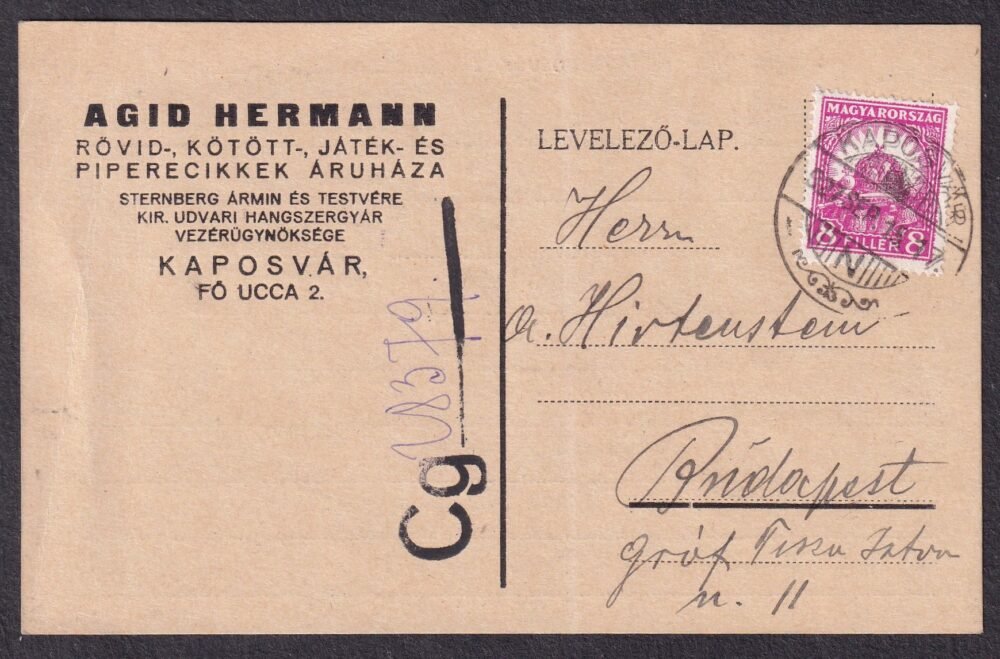 AGID HERMANN
RÖVID-, KÖTÖTT-, JÁTÉK- ÉS
PIPERECIKKEK ÁRUHÁZA
STERNBERG ÁRMIN ÉS TESTVÉRE
KIR. UDVARI HANGSZERGYÁR
VEZÉRÜGYNÖKSÉGE
KAPOSVÁR,
FŐ UCCA 2.
Cg
LEVELEZŐ-LAP.
MAGYARORSZÁG
8 FILLÉR 8
KAPOSVÁR
Herrn
A. Hirtenstein
Budapest
gróf Tisza István
u. 11